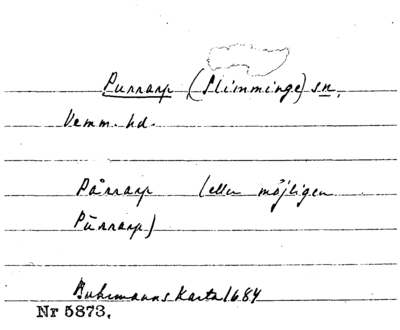 Purrarp (Slimminge) sn,
Vemm. hd.
Pårrarp (eller möjligen
Pürrarp)
Buhrmanns Karta 1684
Nr 5873,